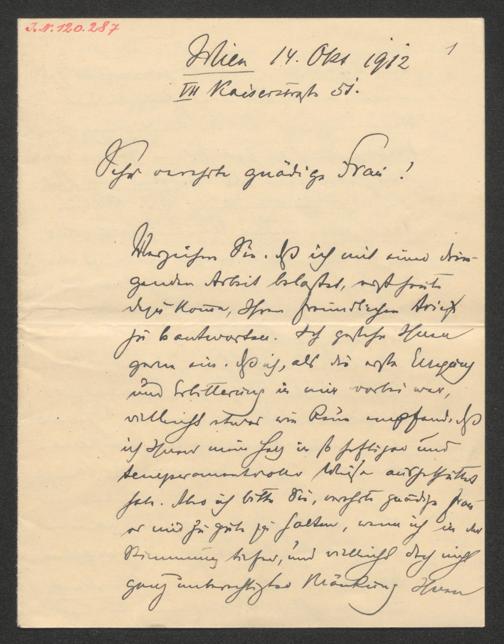 I.N. 120.287
1
Wien 14. Okt 1912
VII Kaiserstraße 51.
Sehr verehrte gnädige Frau!
Verzeihen Sie, dß ich mit einer drin-
genden Arbeit belastet, erst heute
dazu komme, Ihren freundlichen Brief
zu beantworten. Ich gestehe Ihnen
gerne ein, dß ich, als die erste Erregung
und Erbitterung in mir vorbei war,
vielleicht etwas wie Reue empfand, dß
ich Ihnen mein Herz in so heftiger und
temperamentvoller Weise ausgeschüttet
habe. Also ich bitte Sie, verehrte gnädige Frau
es mir zu gute zu halten, wenn ich in der
Stimmung tiefer, und vielleicht doch nicht
ganz unberechtigter Kränkung Ihnen